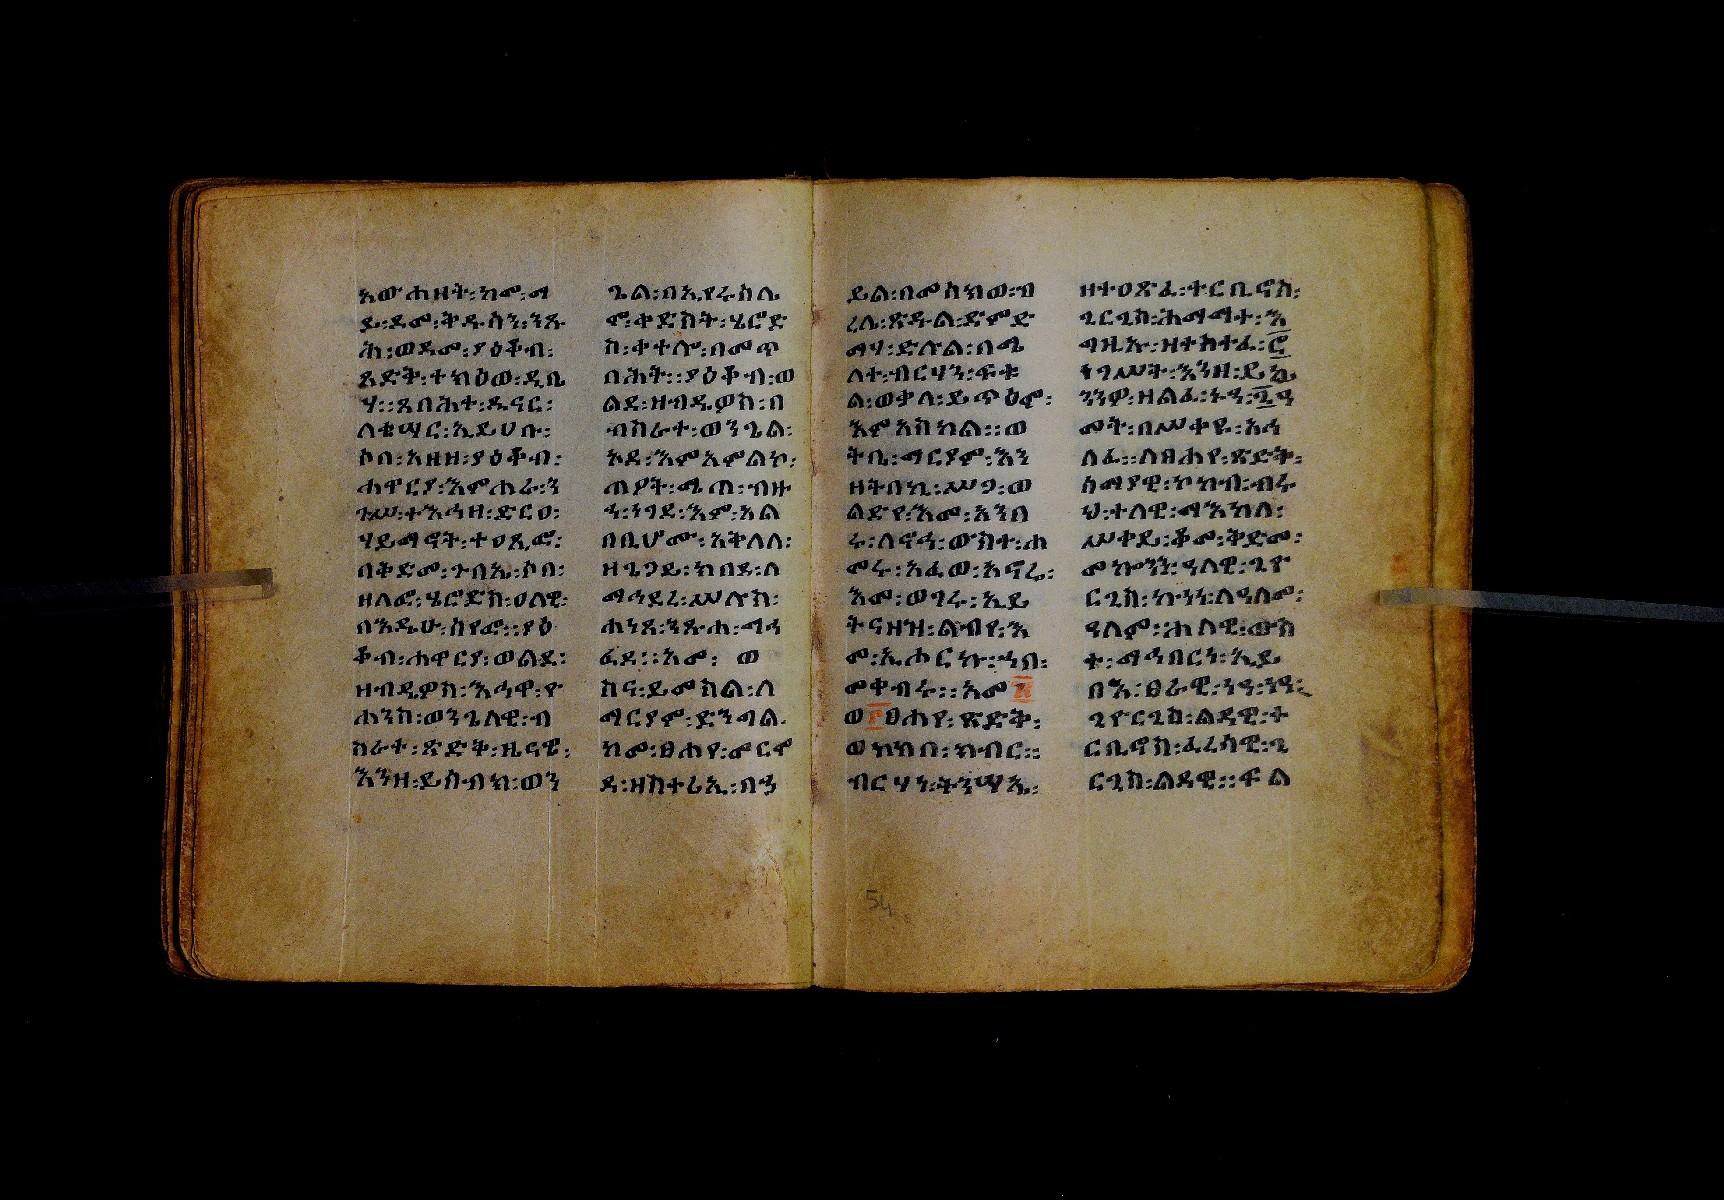 አውሐዘት፡ከመ፡ማ
ይ፡ደመ፡ቅዱሳን፡ንጹ
ሕ፡ወደመ፡ያዕቆብ፡
ጻድቅ፡ተክዕወ፡ዲቤ
ሃ፡፡ጸበሕተ፡ዲናር፡
ለቄሣር፡ኢይሀቡ፡
ሶበ፡አዘዘ፡ያዕቆብ፡
ሐዋርያ፡እምሐራ፡ን
ጉሥ፡ተእኅዘ፡ድርዐ፡
ሃይማኖት፡ተዐጺፎ፡
በቅድመ፡ጉባኤ፡ሶበ፡
ዘለፎ፡ሄሮድስ፡ዐለዊ፡
በእዴሁ፡ሰየፎ፡፡ያዕ
ቆብ፡ሐዋርያ፡ወልደ፡
ዘብዴዎስ፡እኅዋ፡ዮ
ሐንስ፡ወንጌላዊ፡ብ
ስራተ፡ጽድቅ፡ዜናዊ፡
እንዘ፡ይሰብክ፡ወን
ጌል፡በኢየሩሳሌ
ሞ፡ቀድሰት፡ሄሮድ
ስ፡ቀተሎ፡በመጥ
በሕት፡፡ያዕቆብ፡ወ
ልደ፡ዘብዴዎስ፡በ
ብስራተ፡ወንጌል፡
አደ፡እምአምልኮ፡
ጠዖት፡ሜጠ፡ብዙ
ኃ፡ነገደ፡እም፡አል
በቢሆሙ፡አቅለለ፡
ዘጌጋይ፡ክበደ፡ለ
ማኅደረ፡ሥሉስ፡
ሐነጸ፡ንጹሐ፡ማኅ
ፈደ፡፡አመ፡ ወ
ስና፡ይመስል፡ለ
ማርያም፡ድንግል
ከመ፡ፀሐየ፡መርሞ
ዳ፡ዘከተራኢ፡በኀ
ይል፡በመስከወ፡ብ
ረሌ፡ጽዱል፡ድምድ
ማሃ፡ድሉል፡በጫ
ለተ፡ብርሃን፡ፍቱ
ል፡ወቃለ፡ይጥዕሞ፡
እምአስካል፡፡ወ
ትቤ፡ማርያም፡እን
ዘትበኪ፡ሥጋ፡ወ
ልድየ፡እመ፡አንበ
ሩ፡ለኖኅ፡ውስተ፡ሐ
መሩ፡አፈወ፡አኖሬ፡
እመ፡ወገሩ፡ኢይ
ትናዘዝ፡ልብየ፡እ
መ፡ኢሖርኩ፡ኀበ፡
መቀብሩ፡፡አመ፳
ወ፫ፀሐየ፡ጽድቅ፡
ወኮከበ፡ክብር፡፡
ብርሃነ፡ትንሣኤ፡
ዘተዐጽፈ፡ተርቢኖስ፡
ጊርጊስ፡ሕማማተ፡እ
ግዚኡ፡ዘተከተፈ፡፸
ነገሥት፡እንዘ፡ይኴ
ንንዎ፡ዘልፈ፡
መት፡በሥቀዩ፡አኅ
ለፈ፡፡ለፀሐየ፡ጽድቅ፡
ሰማያዊ፡ኮከብ፡ብሩ
ህ፡ተለዊ፡ማእከለ፡
ሥቀይ፡ቆመ፡ቅድመ፡
መኰንን፡ዓለዊ፡ጊዮ
ርጊስ፡ኰነነ፡ለዓለመ፡
ዓለም፡ሐለዊ፡ውስ
ተ፡ማኅበርነ፡ኢይ
በእ፡ፀራዊ፡ነዓ፡ነዓ፡
ጊዮርጊስ፡ልዳዊ፡ተ
ርቢኖስ፡ፈረሳዊ፡ጊ
ርጊስ፡ልዳዊ፡፡ፍል
54